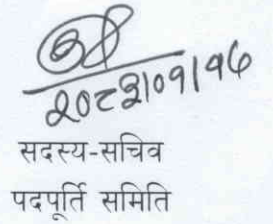 २०८२।०१।१७
सदस्य-सचिव
पदपूर्ति समिति